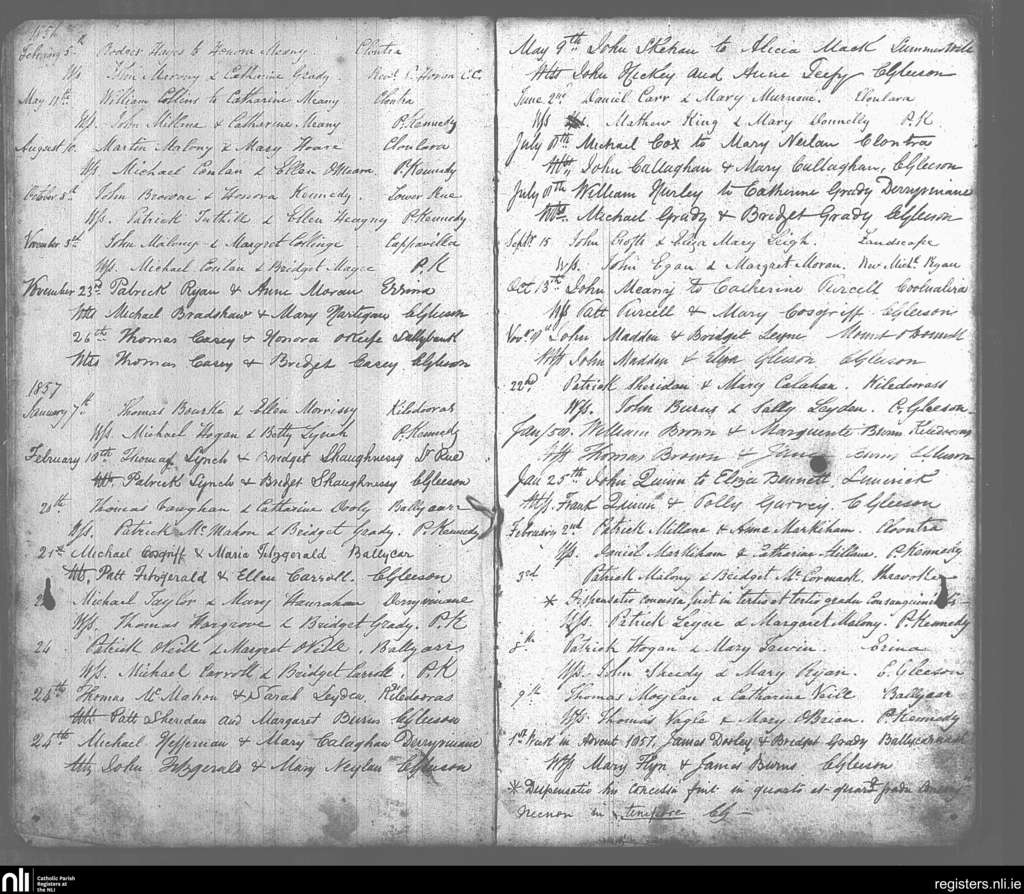 1856
February 5 Rodger Hayes to Honora Meany Clontra
Ws. John Moroney & Catharine Grady. Revd. Horan C.C.
May 11th William Collins to Catharine Meany Clontra
Ws. John & Catharine Meany P. Kennedy
August 10. Martin Malony & Mary Hoare Cloulara
Ws. Michael Conlan & Ellen OMeara P. Kennedy
October 5th John Browne & Honora Kennedy. Lower Rue
Ws. Patrick Tuthill & Ellen Heagny P. Kennedy
November 5th John Malony & Margret Cappavilla
Ws. Michael Conlan & Bridget Magee P.K
November 23rd Patrick Ryan & Anne Moran Errina
Wts Michael Bradshaw & Mary Hartigan CGleeson
26th Thomas Casey & Honora OKeefe Sallybank
Wts Thomas Casey & Bridget Casey CGleeson
1857
January 7th Thomas Bourke & Ellen Morrissy Kildooras
Ws. Michael Hogan & Betty Lynch P. Kennedy
February 10th Thomas Lynch & Bridget Shaughnessy Rue
Wts Patrick Lynch & Bridget Shaughnessy CGleeson
20th Thomas Vaughan & Catharine Dooly Ballycar
Ws. Patrick Mc Mahon & Bridget Grady. P. Kennedy
21st Michael Cosgriff & Maria Fitzgerald Ballycar
Wts. Patt Fitzgerald & Ellen Carroll. CGleeson
Michael Taylor & Mary Hanrahan Derryvinane
Ws. Thomas Hargrove & Bridget Grady. P.K
24 Patrick ONeill & Margret ONeill. Ballycar
Ws. Michael Carroll & Bridget Carroll P.K
24th Thomas Mc Mahon & Sarah Leyden Kildooras
Wts Patt Sheridan and Margaret Burns CGleeson
24th Michael Heffernan & Mary Calaghan Derryvinane
Wts John Fitzgerald & Mary Neylan CGleeson
May 9th John Skehan to Alicia Mack Summerhill
Wts John Hickey and Anne Teefy CGleeson
June 2nd Daniel Carr & Mary Murnane. Cloulara
Ws Mathew King & Mary Donnelly P.K
July Michael Cox to Mary Neilan Clontra
Wts, John Callaghan & Mary Callaghan, CGleeson
July William Hurley to Catherine Grady Derryvinane
Wts. Michael Grady & Bridget Grady CGleeson
Septr. 15 John Crofts & Eliza Mary Leigh. Landscape
Ws. John Egan & Margret Moran. Rev. Michl. Ryan
Oct 13th John Meany to Catherine Purcell Coolnalira
Ws Patt Purcell & Mary Cosgriff CGleeson
Novr. 9th John Madden & Bridget Leyne Mount
Ws John Madden & Eliza Gleeson CGleeson
22nd, Patrick Sheridan & Mary Calahan. Kildooras
Ws. John Burns & Sally Leyden. C. Gleeson
Jan William Brown & Marguerite Burns Kildooras
Thomas Brown & Jane Burns
Jan 25th John Quinn to Eliza Bennett, Limerick
Wts. Frank Quinn & Polly Garvey CGleeson
February 2nd Patrick Millane & Anne Markham Clontra
Ws. Daniel Markham & Catharine P. Kennedy
3rd Patrick Malony & Bridget Mc Cormack.
* Dispensatio concessa fuit in tertio et tertio gradu Consanguinitatis
Ws. Patrick Leyne & Margaret Malony. P. Kennedy
8th Patrick Hogan & Mary Errina
Ws. John Sheedy & Mary Ryan. C. Gleeson
9th Thomas Moylan & Catharine Neill Ballycar
Ws. Thomas Nagle & Mary OBrien. P. Kennedy
1st Week in Advent 1857. James Dooley & Bridget Grady
Ws Mary Flyn & James Burns CGleeson
* Dispensatio his concessa fuit in quarto et quarto gradu
necnon in tempore CG
nli Catholic Parish Registers at the NLI
registers.nli.ie